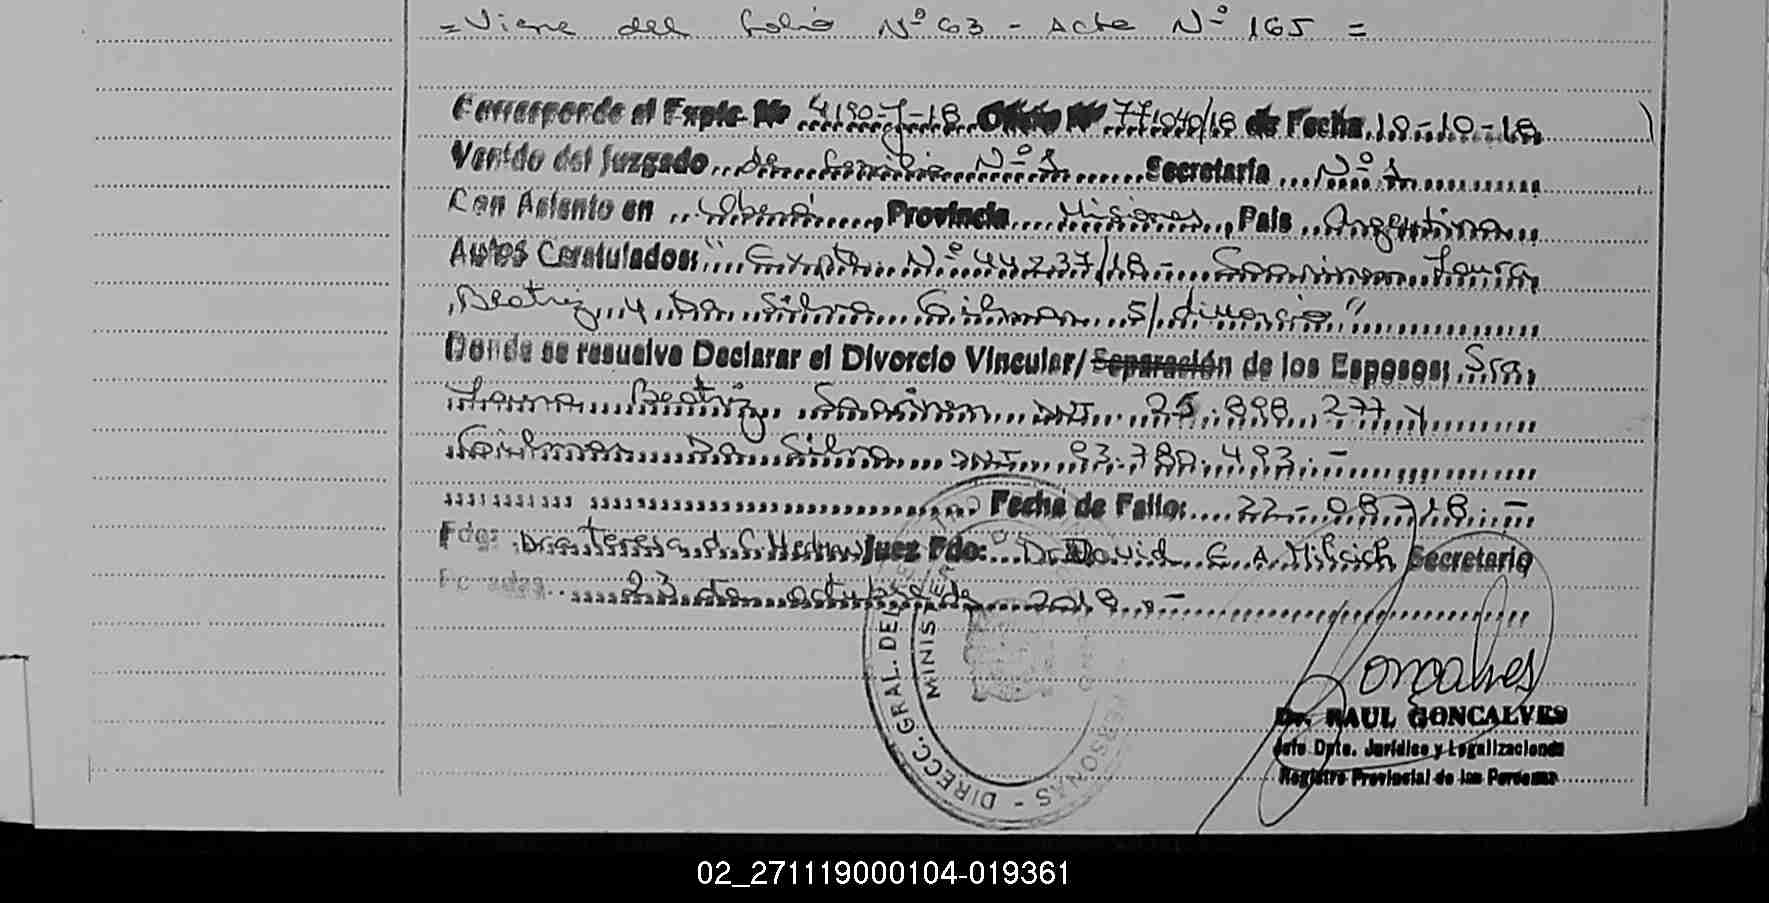 = Viene del folio Nº 63 - Acta Nº 165 =
Corresponde al Expte Nº 4190-J-18 Oficio Nº 771040/18 de Fecha 10-10-18
Venido del Juzgado de Familia Nº 1 Secretaría Nº 1
Con Asiento en Oberá, Provincia Misiones, País Argentina
Autos Caratulados: "Expte. Nº 44237/18 - Laura
Beatriz y Da Silva Gilmar S/ divorcio"
Donde se resuelve Declarar el Divorcio Vincular/Separación de los Esposos: Sra.
Laura Beatriz DNI 25.898.277 y
Gilmar Da Silva DNI 93.780.493.-
Fecha de Fallo: 22-08-18.-
Fdo: Dra Teresa Juez Fdo: Dr. David E. A. Milcich Secretario
Posadas 23 de octubre de 2018.-
Goncalves
Dr. RAUL GONCALVES
Jefe Dpto. Jurídico y Legalizaciones
Registro Provincial de las Personas
DIRECC. GRAL. DE PERSONAS -
MINIS
02_271119000104-019361